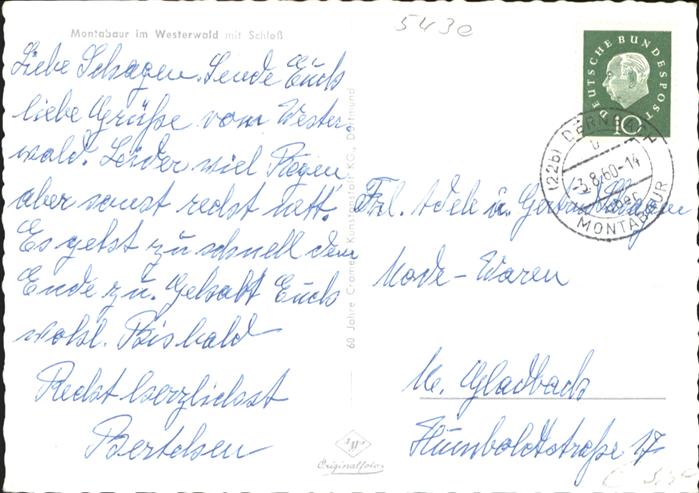 5430
Montabaur im Westerwald mit Schloß
Liebe Schagen. Sende Euch
liebe Grüße vom Wester-
wald. Leider viel Regen
aber sonst recht nett.
Es geht zu schnell dem
Ende zu. Gehabt Euch
wohl. Bis bald
Recht herzlichst
60 Jahre Cramers Kunstanstalt KG., Dortmund
Originalfoto
DEUTSCHE BUNDESPOST
10
(22b) DERNBACH
-3.8.60-14
über
MONTABAUR
Frl. Adele u. Gertrud Schagen
Mode-Waren
M. Gladbach
Humboldtstraße 17